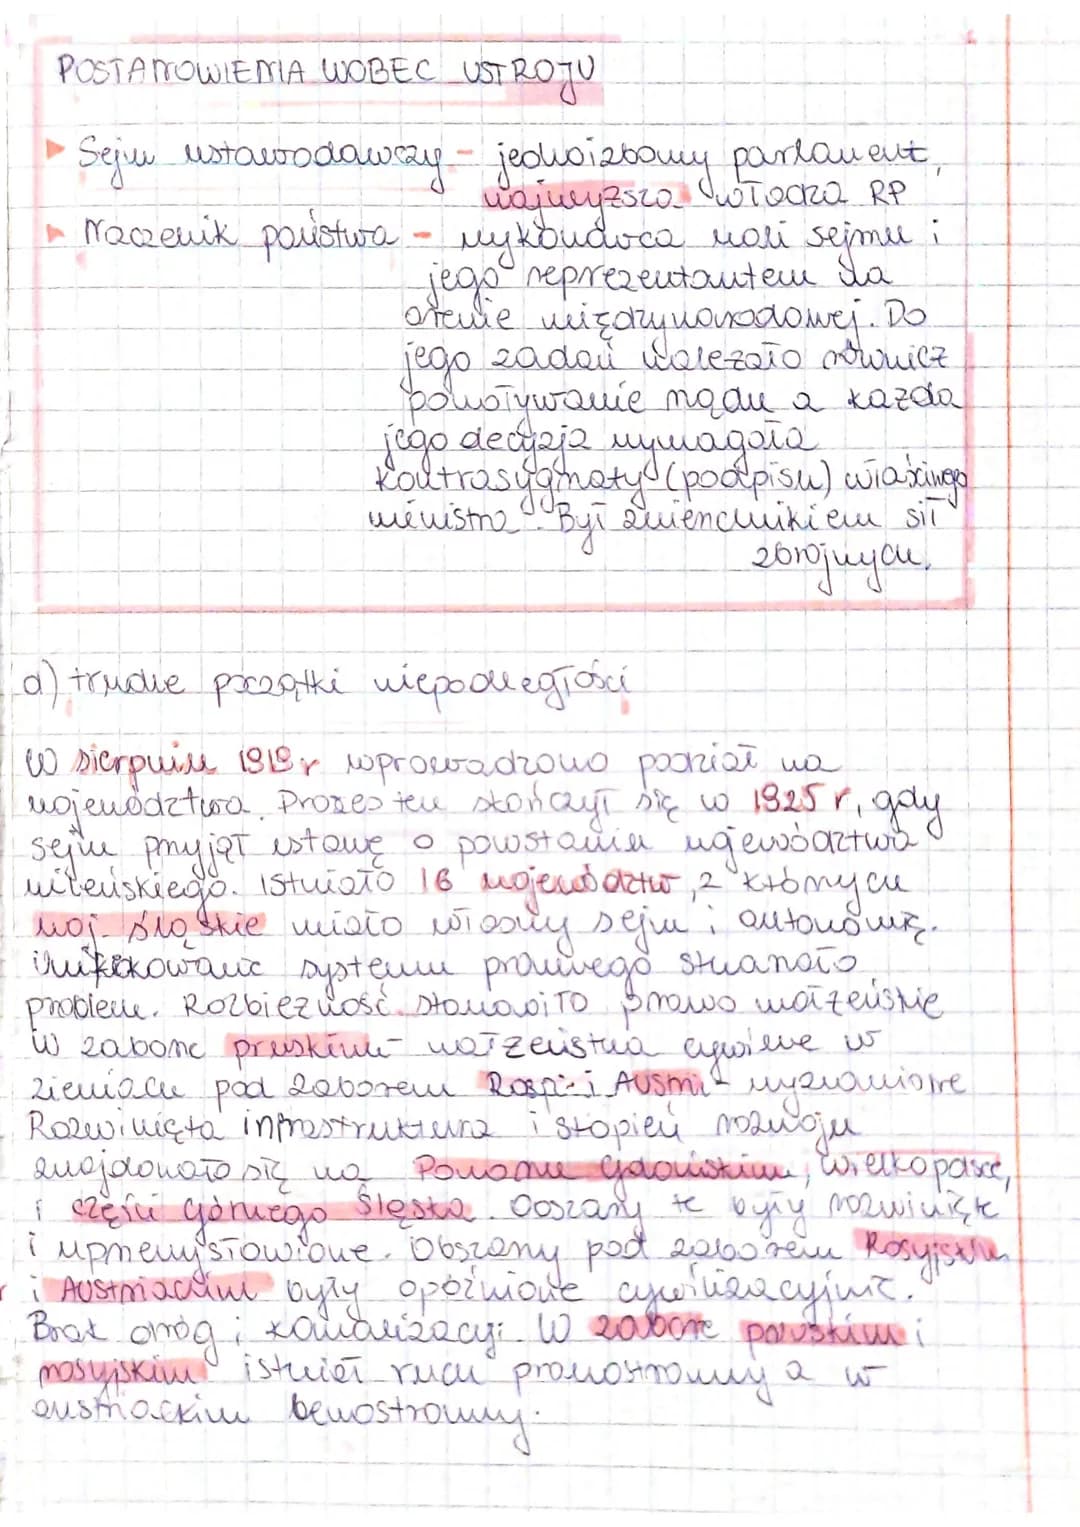 POSTANOWIENIA WOBEC USTROJU
▸ Sejm ustawodawczy - jednoizbowy parlament,
najwyższa władza RP
▸ Naczenik państwa - wykonawca woli sejmu i
jego reprezentantem na
arenie międzynarodowej. Do
jego zadań należało również
powoływanie rządu a każda
jego decyzja wymagała
kontrasygnaty (podpisu) właściwego
ministra. Był zwierzchnikiem sił
zbrojnych.
d) trudne początki niepodległości
W sierpniu 1919 r wprowadzono podział na
województwa. Proces ten skończył się w 1925 r, gdy
sejm przyjął ustawę o powstaniu województwa
wileńskiego. Istniało 16 województw, z których
woj. śląskie miało własny sejm i autonomię.
system prawnego stwarzało
problem. Rozbieżność stanowiło prawo małżeńskie
W zaborze pruskim - małżeństwa cywilne w
ziemiach pod zaborem Rosji i Austrii - wyznaniowe
Rozwinięta infrastruktura i stopień rozwoju
znajdowało się na Pomorzu Gdańskim, Wielkopolsce,
i części Górnego Śląska. Obszary te były rozwinięte
i uprzemysłowione. Obszary pod zaborem Rosyjskim
i Austriackim były opóźnione cywilizacyjnie.
Brak dróg i kanalizacji. W zaborze pruskim i
rosyjskim istniał ruch prawostronny a w
austriackim lewostronny.